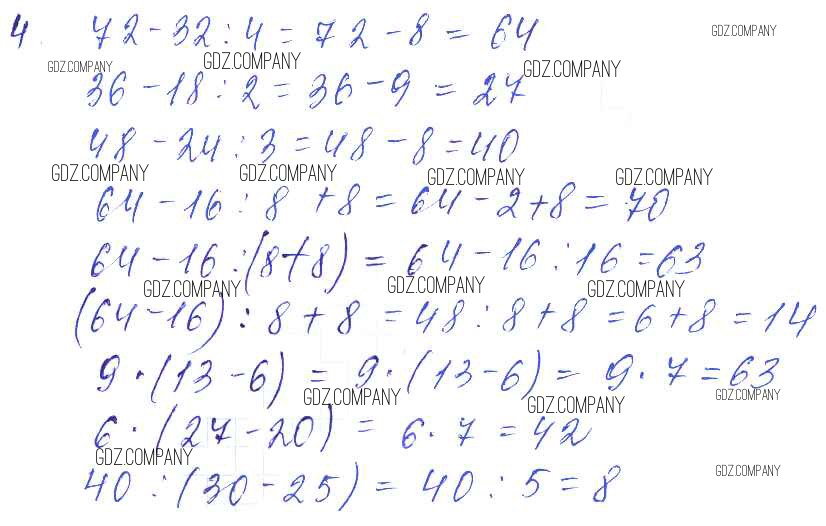 4. 72 - 32 : 4 = 72 - 8 = 64
GDZ.COMPANY
GDZ.COMPANY GDZ.COMPANY GDZ.COMPANY
36 - 18 : 2 = 36 - 9 = 27
48 - 24 : 3 = 48 - 8 = 40
GDZ.COMPANY GDZ.COMPANY GDZ.COMPANY GDZ.COMPANY
64 - 16 : 8 + 8 = 64 - 2 + 8 = 70
64 - 16 : (8 + 8) = 64 - 16 : 16 = 63
GDZ.COMPANY GDZ.COMPANY GDZ.COMPANY
(64 - 16) : 8 + 8 = 48 : 8 + 8 = 6 + 8 = 14
9 · (13 - 6) = 9 · (13 - 6) = 9 · 7 = 63
GDZ.COMPANY GDZ.COMPANY GDZ.COMPANY
6 · (27 - 20) = 6 · 7 = 42
GDZ.COMPANY GDZ.COMPANY
40 : (30 - 25) = 40 : 5 = 8